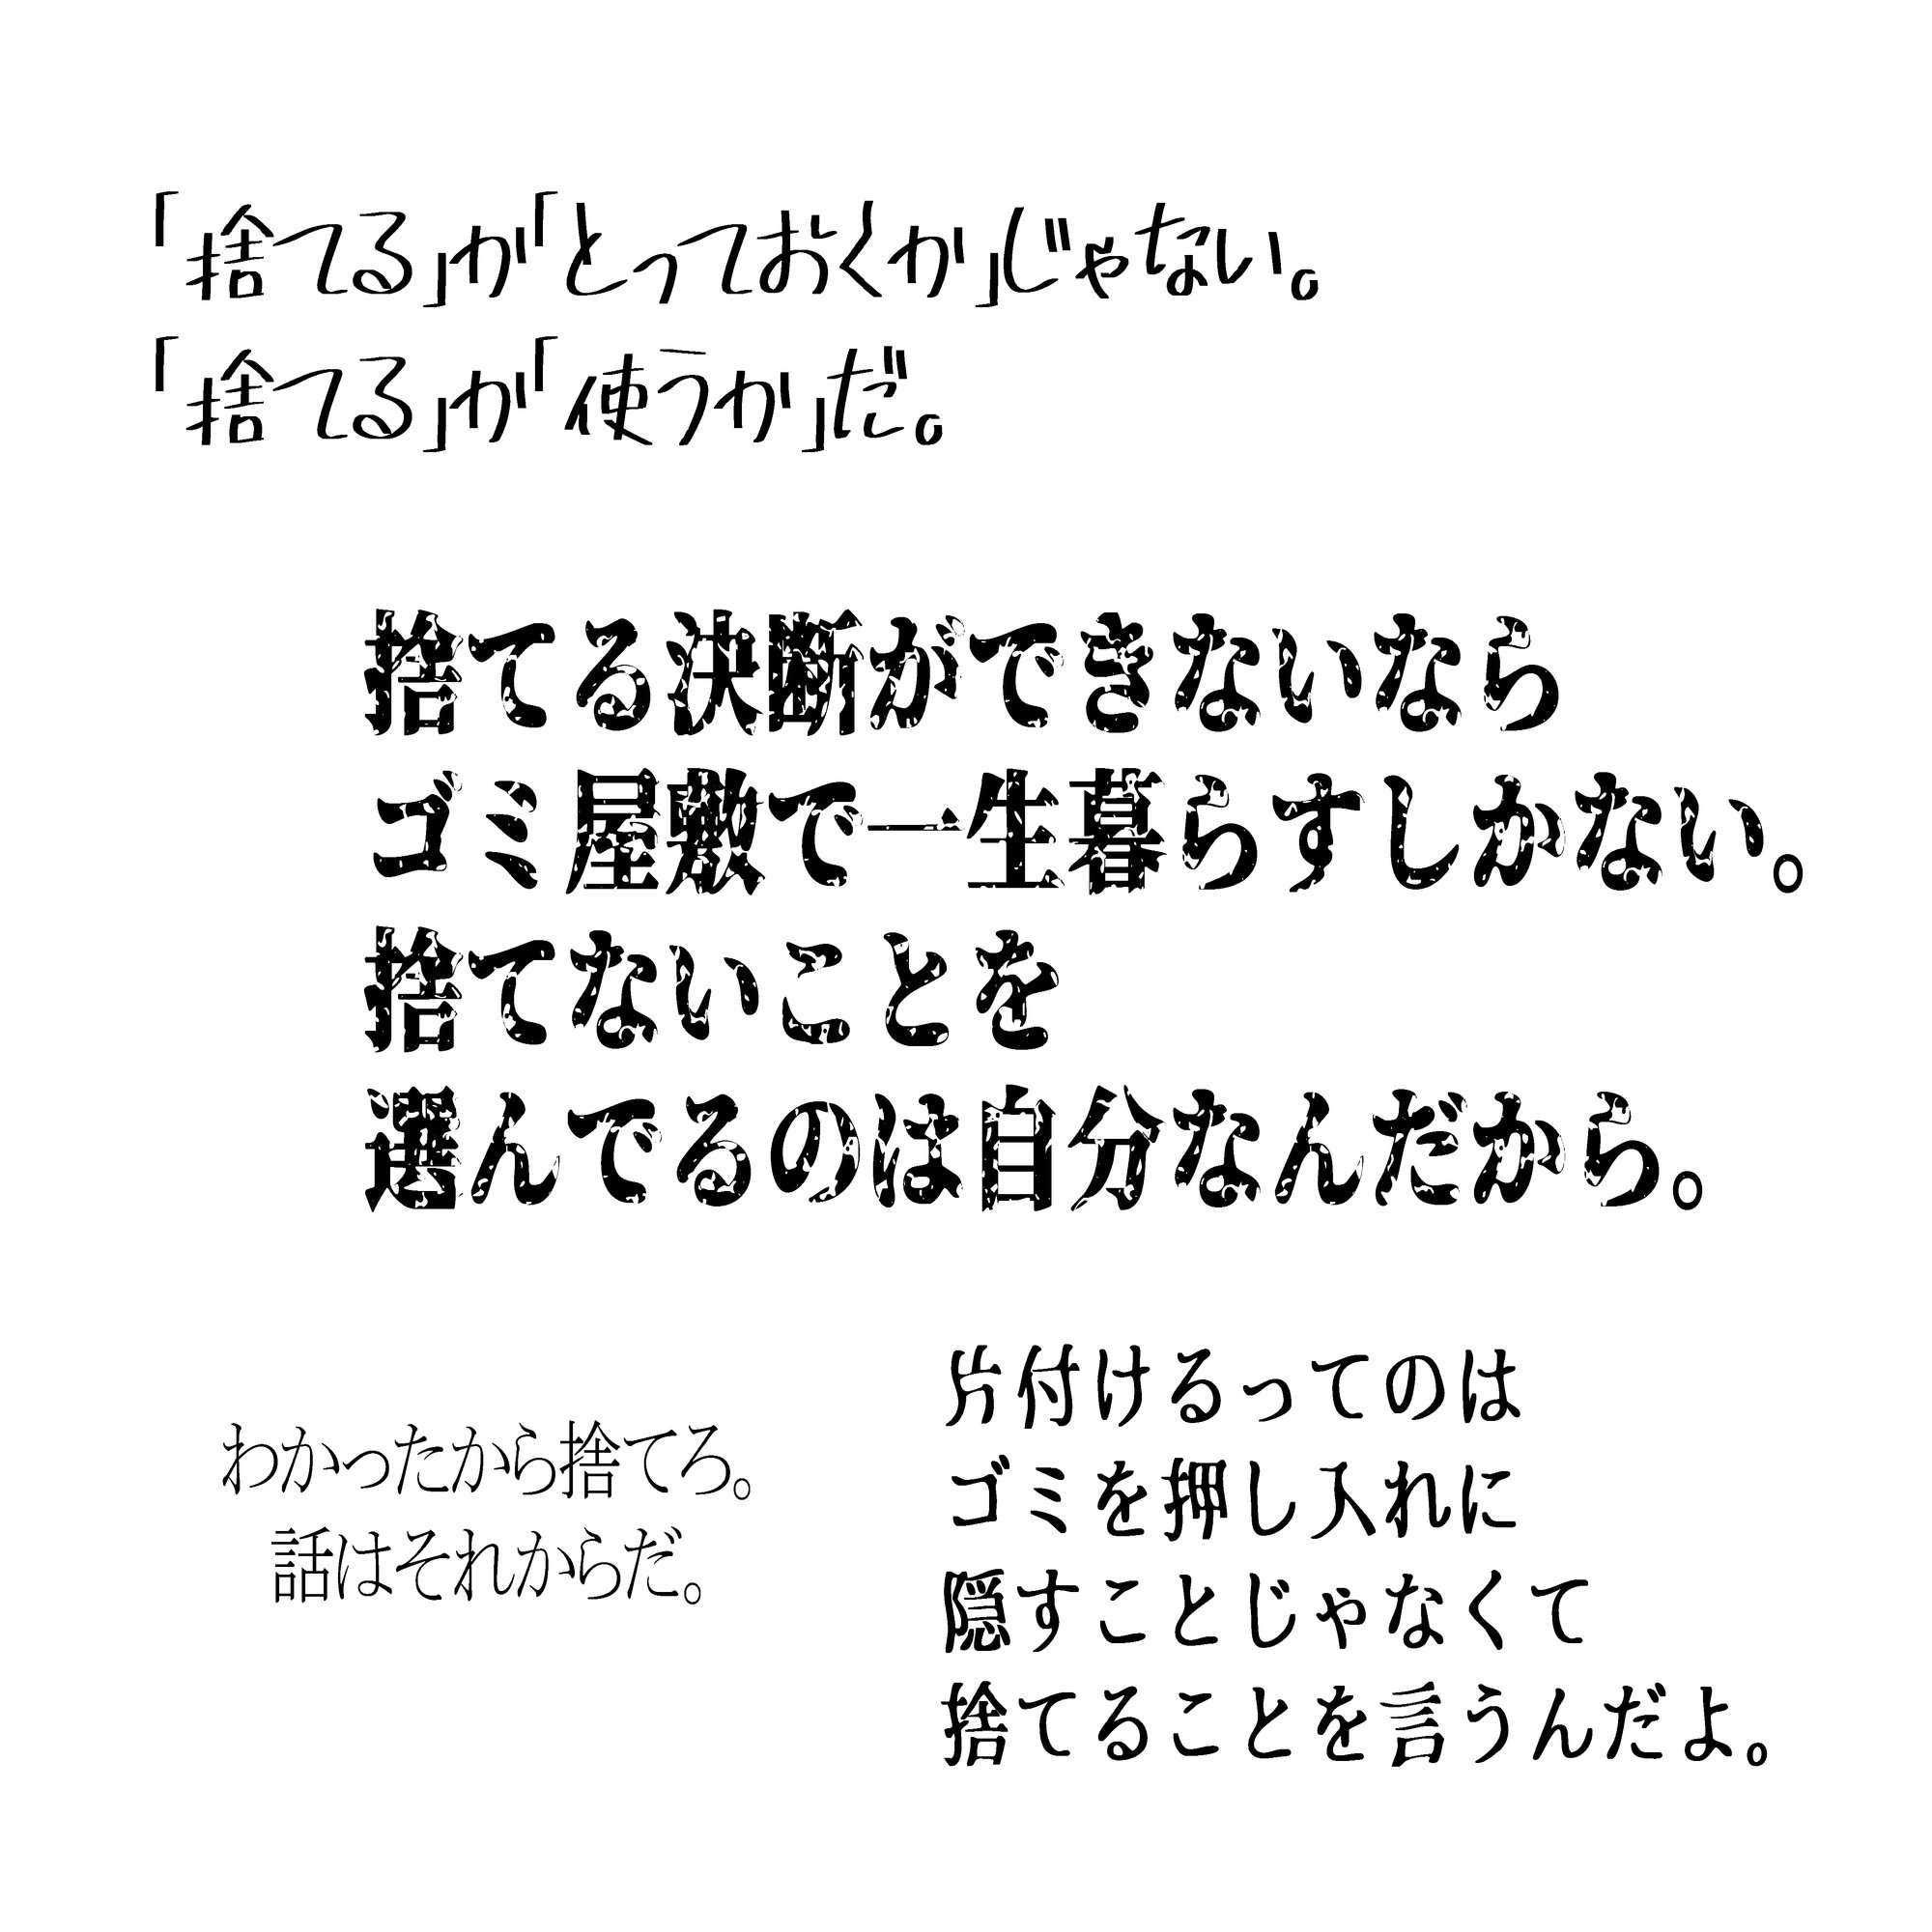 「捨てる」か「とっておくか」じゃない。
「捨てる」か「使うか」だ。
捨てる決断ができないなら
ゴミ屋敷で一生暮らすしかない。
捨てないことを
選んでるのは自分なんだから。
わかったから捨てろ。
話はそれからだ。
片付けるってのは
ゴミを押し入れに
隠すことじゃなくて
捨てることを言うんだよ。